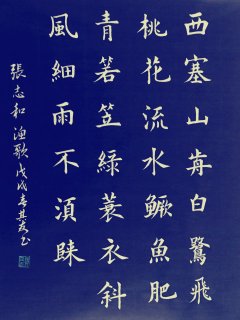 西塞山歬白鷺飛
桃花流水鱖魚肥
青箬笠綠蓑衣斜
風細雨不湏歸
張志和漁歌戊戌春